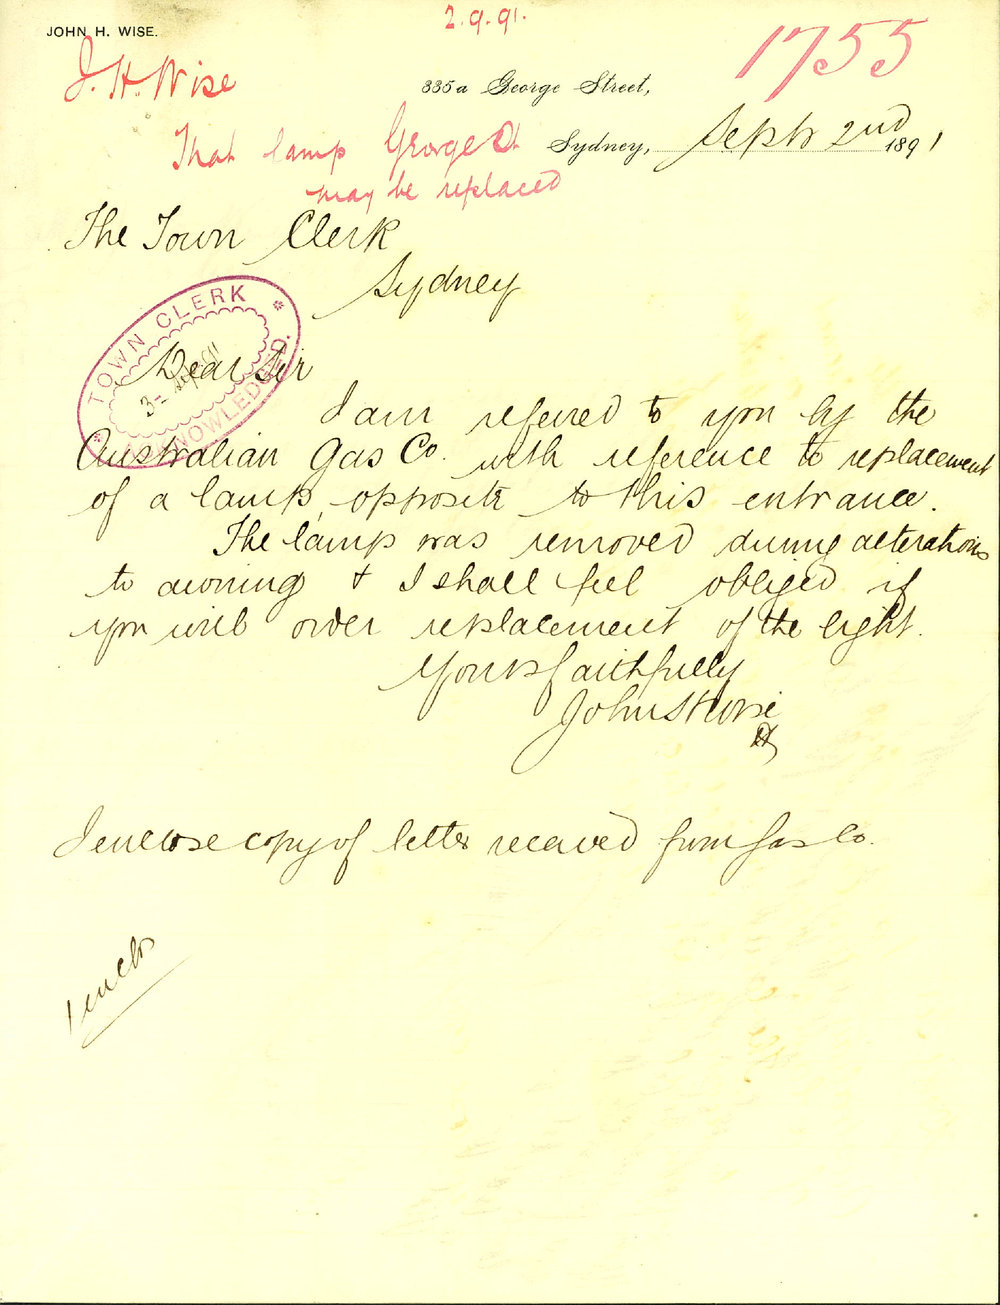 2.9.91.
JOHN H. WISE.
1755
J. H. Wise
335a George Street,
That lamp George St
may be replaced
Sydney, Septr 2nd 1891
The Town Clerk
Sydney
TOWN CLERK
3 = Sep 91
ACKNOWLEDGED.
Dear Sir
I am referred to you by the
Australian Gas Co. with reference to replacement
of a lamp, opposite to this entrance.
The lamp was removed during alterations
to awning & I shall feel obliged if
you will order replacement of the light.
Yours faithfully
John H Wise
I enclose copy of letter received from Gas Co.
1 enclo